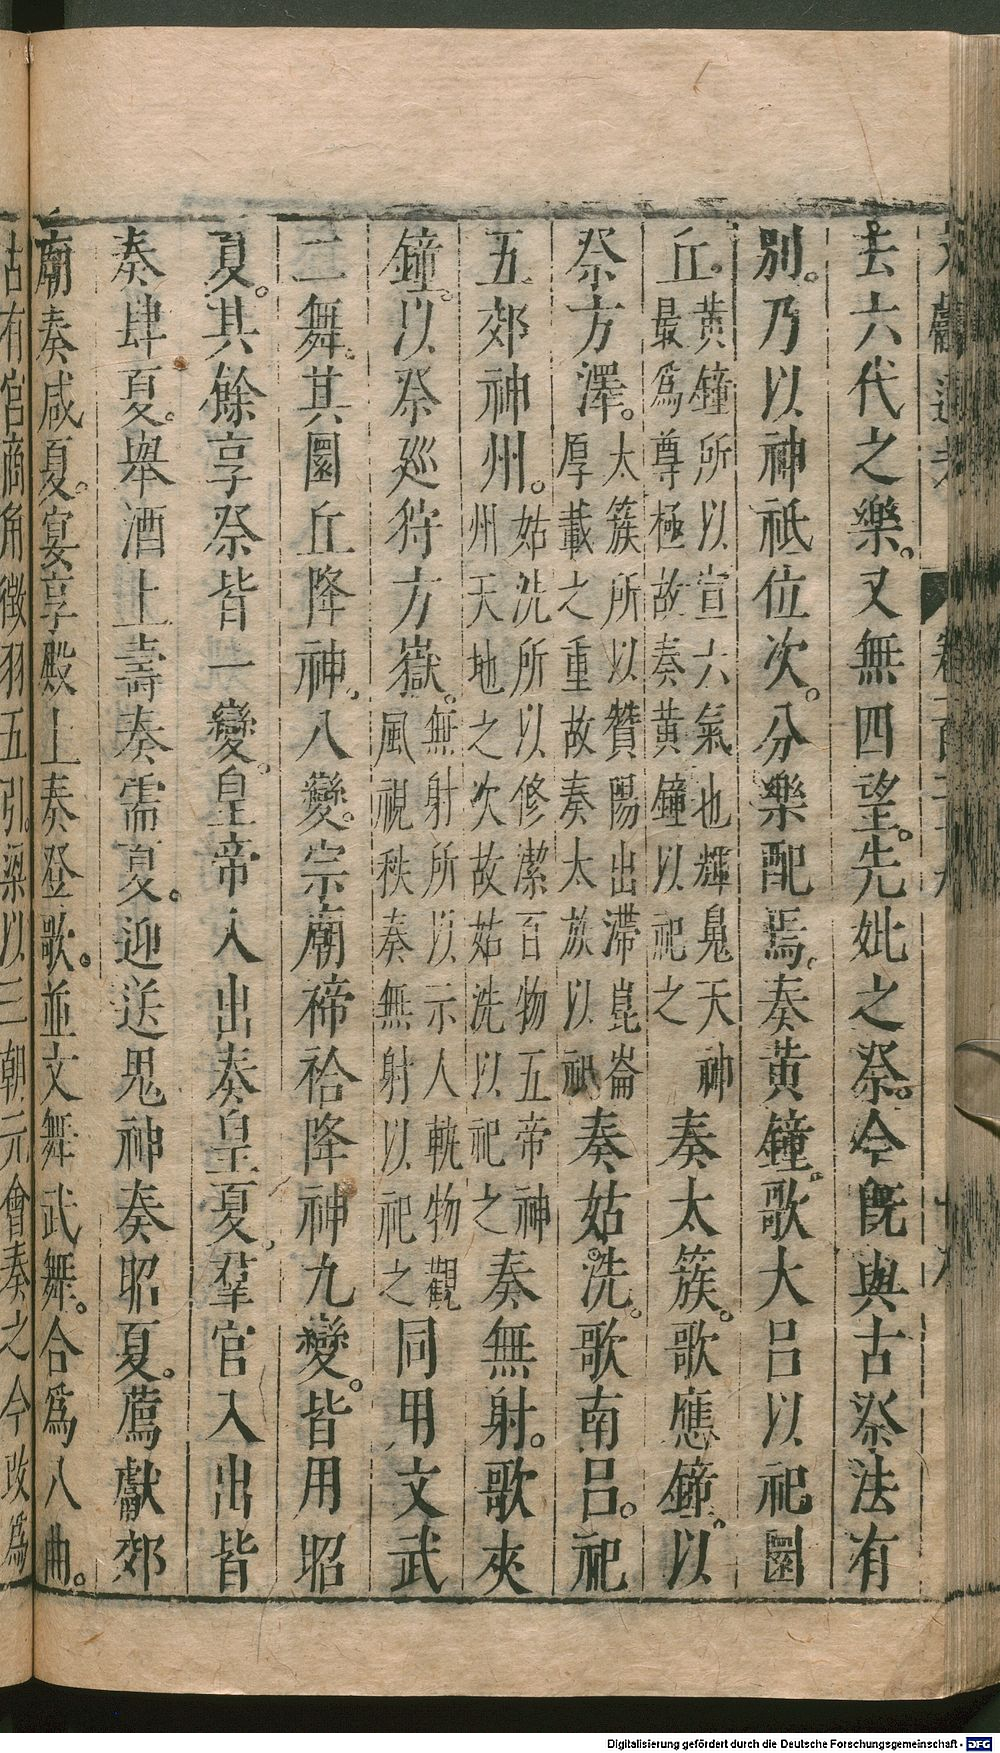 去六代之樂。又無四望。先妣之祭。今既與古祭法有
別。乃以神祇位次。分樂配焉。奏黄鐘。歌大呂以祀圜
丘。黄鐘所以宣六氣也輝鬼天神最爲尊極故奏黄鐘以祀之奏太簇。歌應鐘。以
祭方澤。太簇所以贊陽出滯崑崙厚載之重故奏太族以祀奏姑洗。歌南呂。祀
五郊神州。姑洗所以修潔百物五帝神州天地之次故姑洗以祀之奏無射。歌夾
鐘。以祭廵狩方嶽。無射所以示人軌物觀風視秩奏無射以祀之同用文武
二舞。其圜丘降神。八變。宗廟禘祫降神九變。皆用昭
夏。其餘享祭皆一變。皇帝入出奏皇夏。羣官入出皆
奏肆夏。舉酒上壽奏需夏。迎送鬼神奏昭夏。薦獻郊
廟奏咸夏。宴享殿上奏登歌。並文舞武舞。合爲八曲。
古有宮商角徵羽五引。梁以三朝元會奏之今改爲
Digitalisierung gefördert durch die Deutsche Forschungsgemeinschaft - DFG